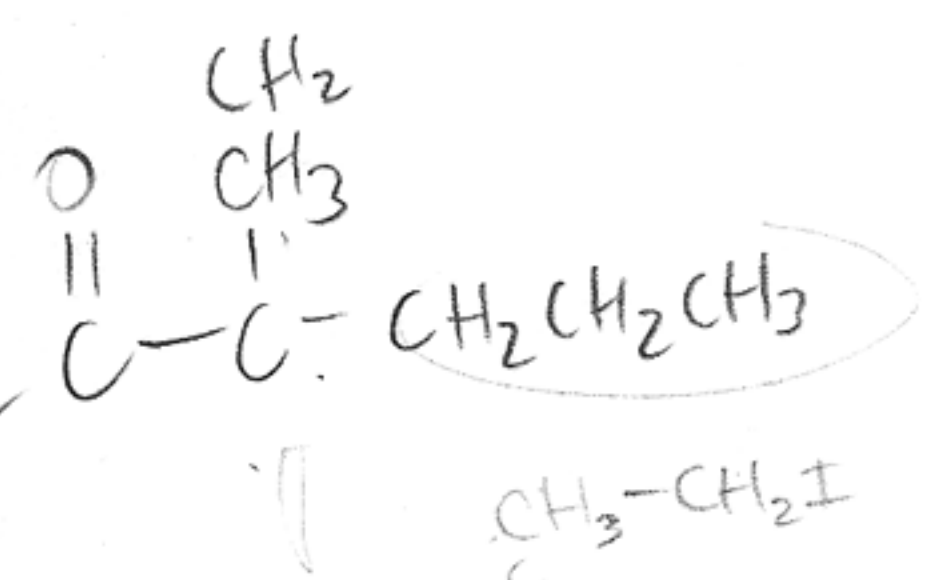 CH₂
O CH₃
C - C - CH₂CH₂CH₃
CH₃-CH₂I